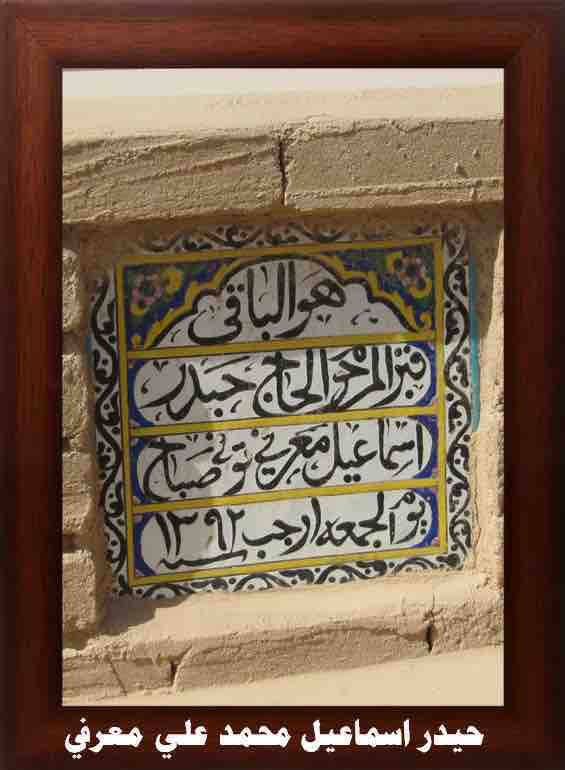 هو الباقي
قبر المرحوم الحاج حيدر
اسماعيل معرفي توفي صباح
يوم الجمعه ١ رجب سنه ١٣٩٢
حيدر اسماعيل محمد علي معرفي